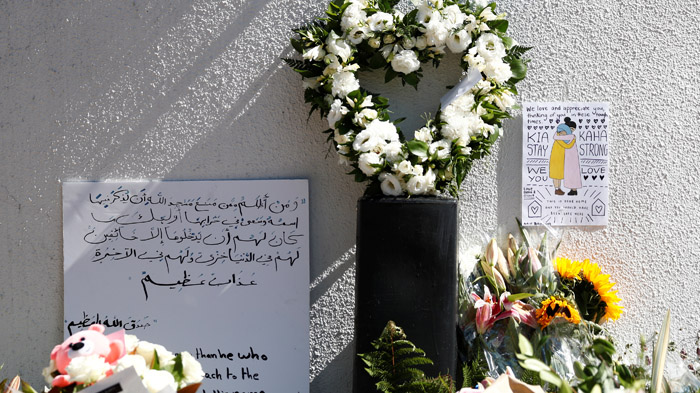 "ومن أظلم ممن منع مسجد الله أن يذكر فيها
اسمه وسعى في خرابها أولئك ما
كان لهم أن يدخلوها إلا خائفين
لهم في الدنيا خزي ولهم في الآخرة
عذاب عظيم"
"صدق الله العظيم"
than he who
to the
We love and appreciate you,
thinking of you in these tough
times."
KIA KAHA
STAY STRONG
WE LOVE
YOU
THIS IS YOUR HOME
AND YOU SHOULD HAVE
BEEN SAFE HERE